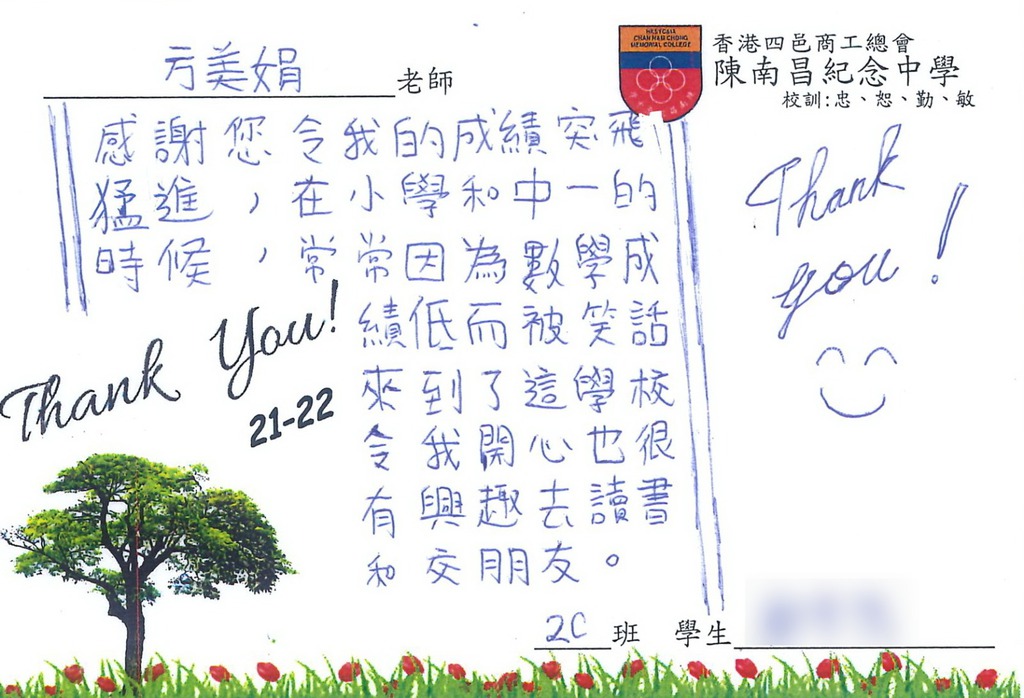 方美娟老師
HKSYC&IA
CHAN NAM CHONG
MEMORIAL COLLEGE
香港四邑商工總會
陳南昌紀念中學
校訓:忠、恕、勤、敏
感謝您令我的成績突飛
猛進,在小學和中一的
時候,常常因為數學成
績低而被笑話
來到了這學校
令我開心也很
有興趣去讀書
和交朋友。
Thank You!
21-22
Thank
you!
2C班 學生